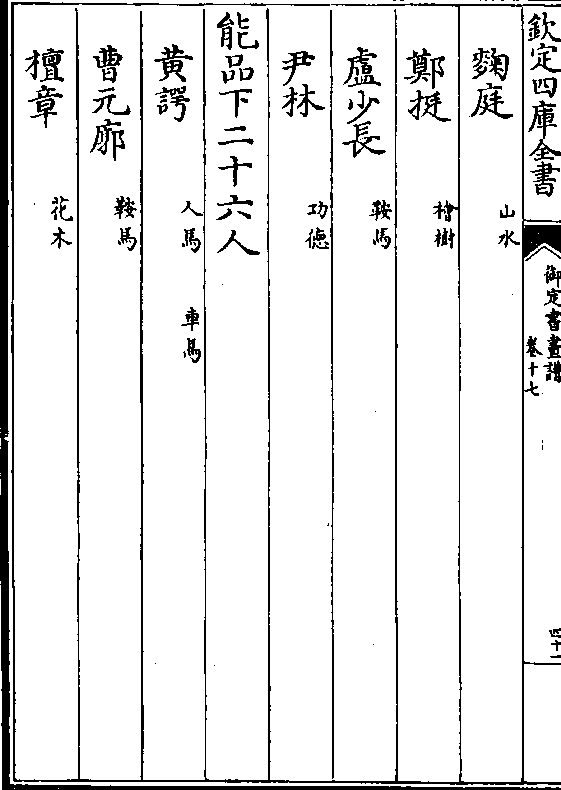 欽定四庫全書
御定書畫譜
卷十七
四十一
麴庭 山水
鄭挺 檜樹
盧少長 鞍馬
尹林 功德
能品下二十六人
黃諤 人馬 車馬
曹元廓 鞍馬
檀章 花木